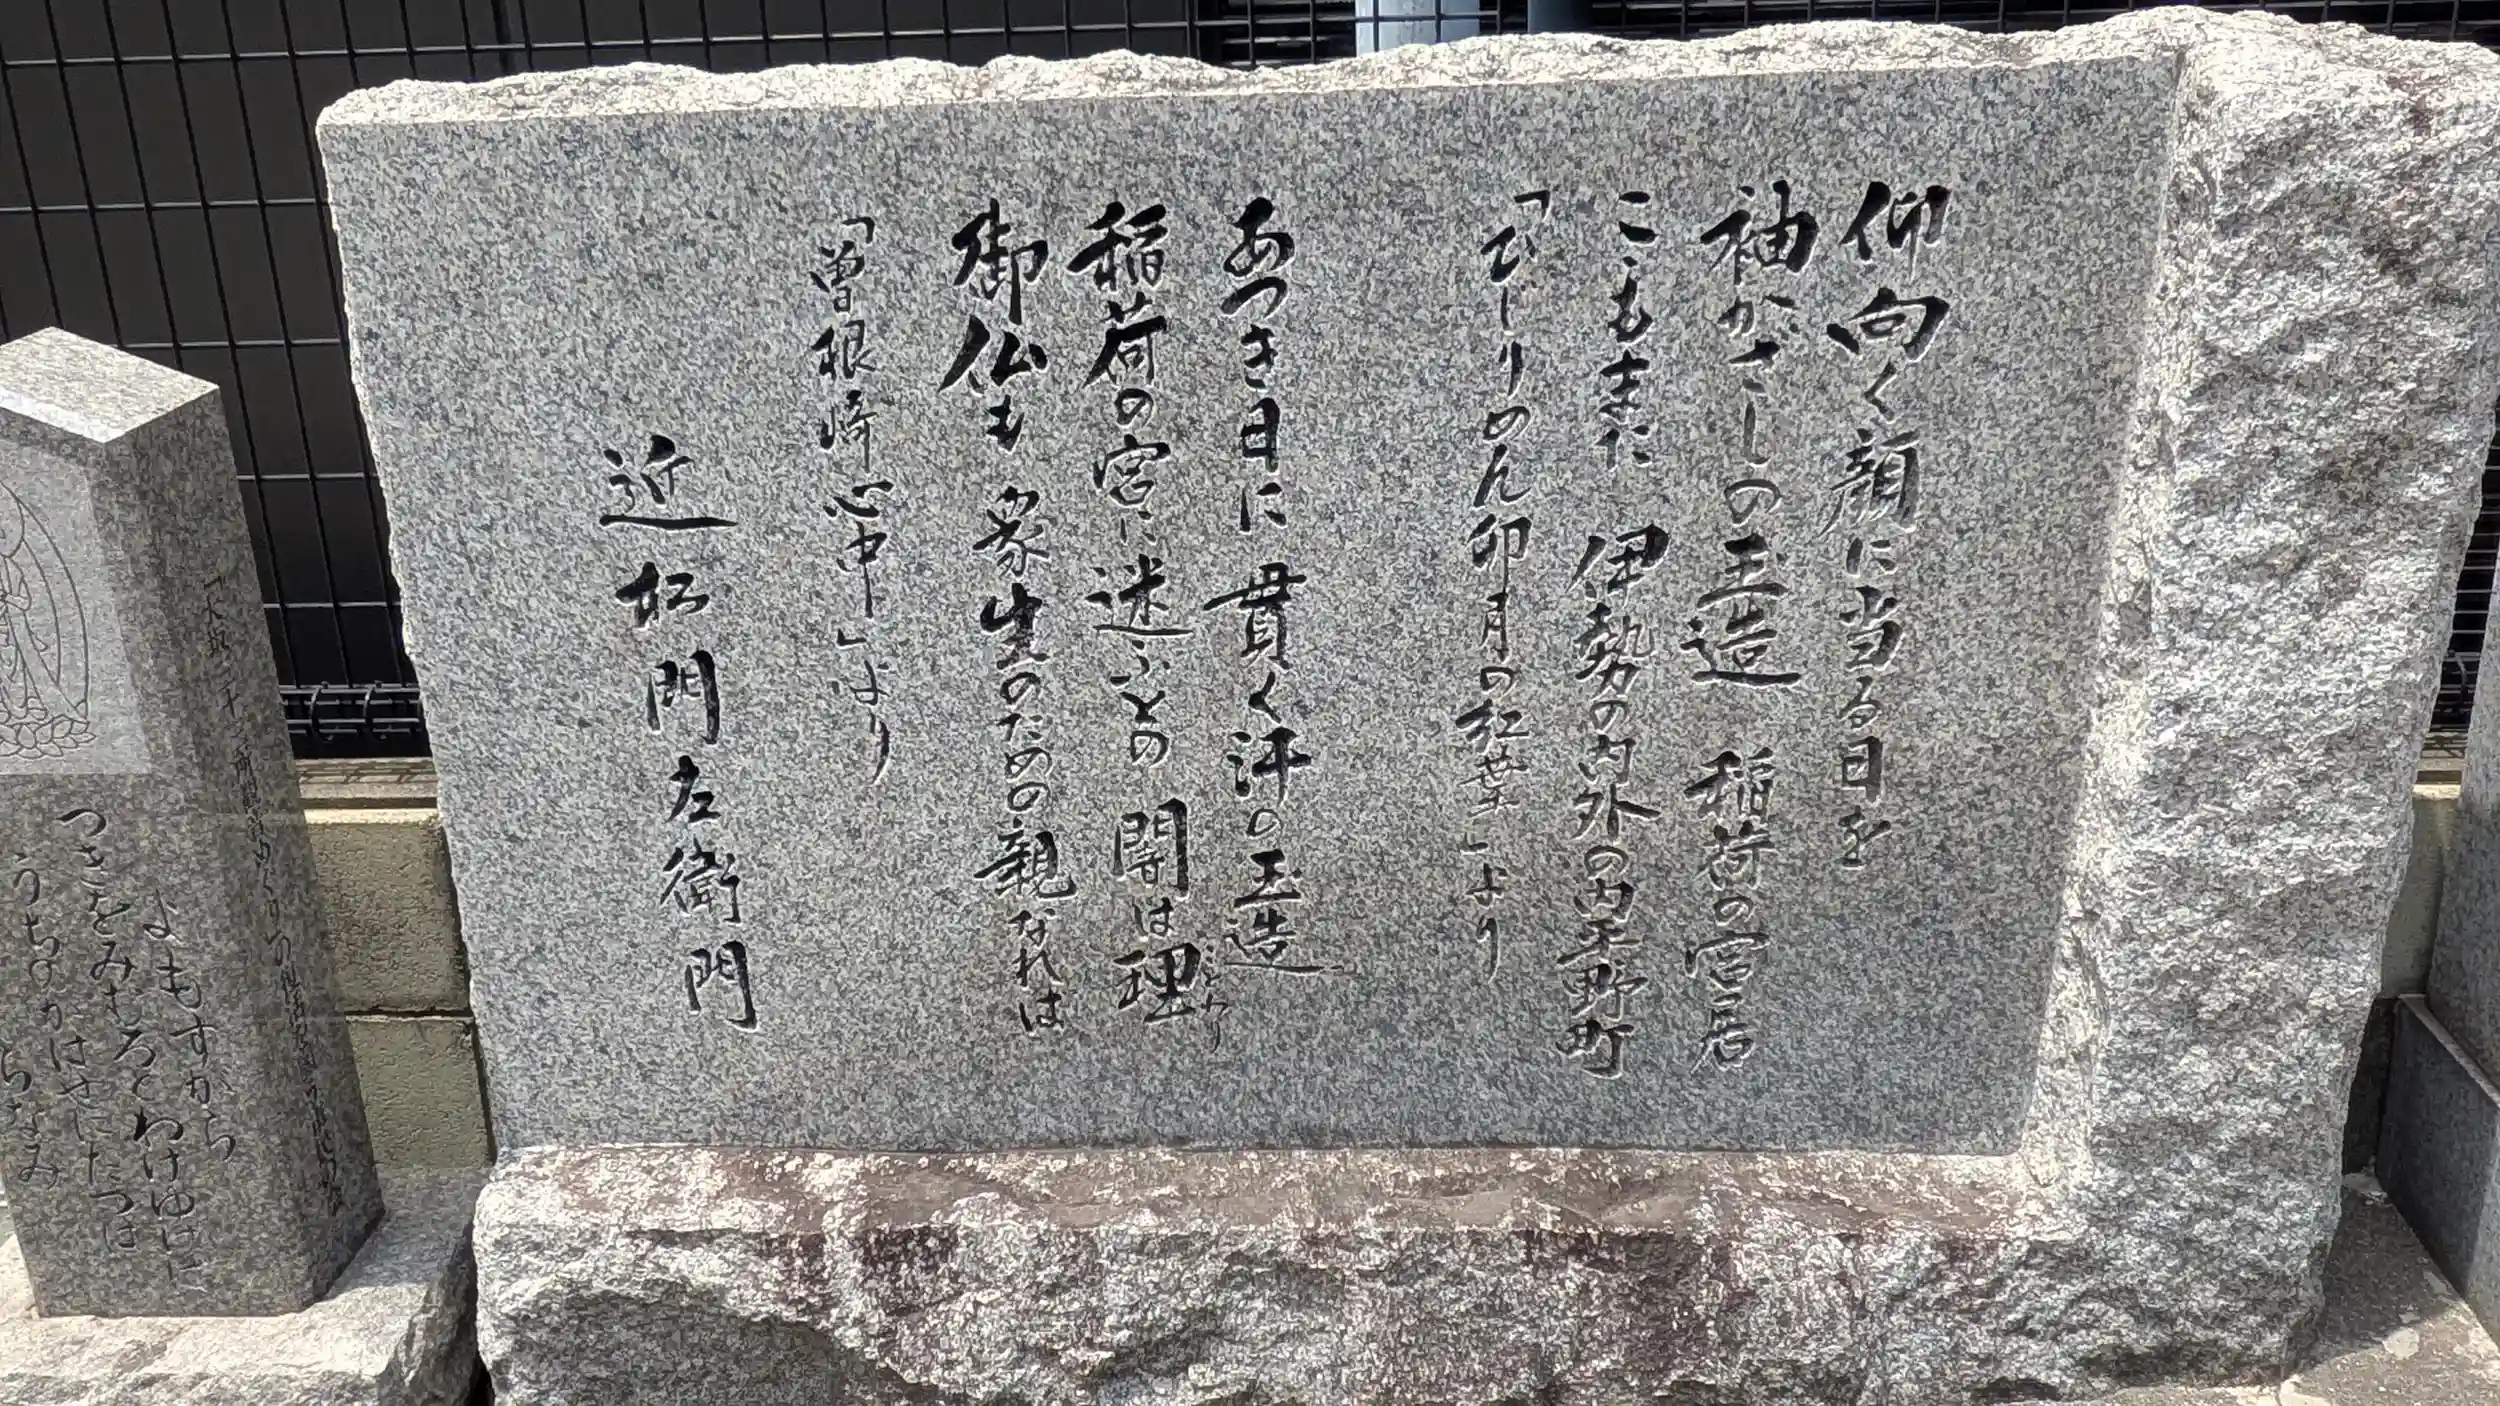 仰向く顔に当る日を
袖がざしの玉造 稲荷の宮居
こゝもまた 伊勢の内外の内平野町
「ひじりめん卯月の紅葉」より
あつき日に貫く汗の玉造
稲荷の宮に迷ふとの 闇は理
ことわり
御仏も衆生のための親なれは
「曽根崎心中」より
近松門左衛門
よもすから
つきをみむろとわけゆけは